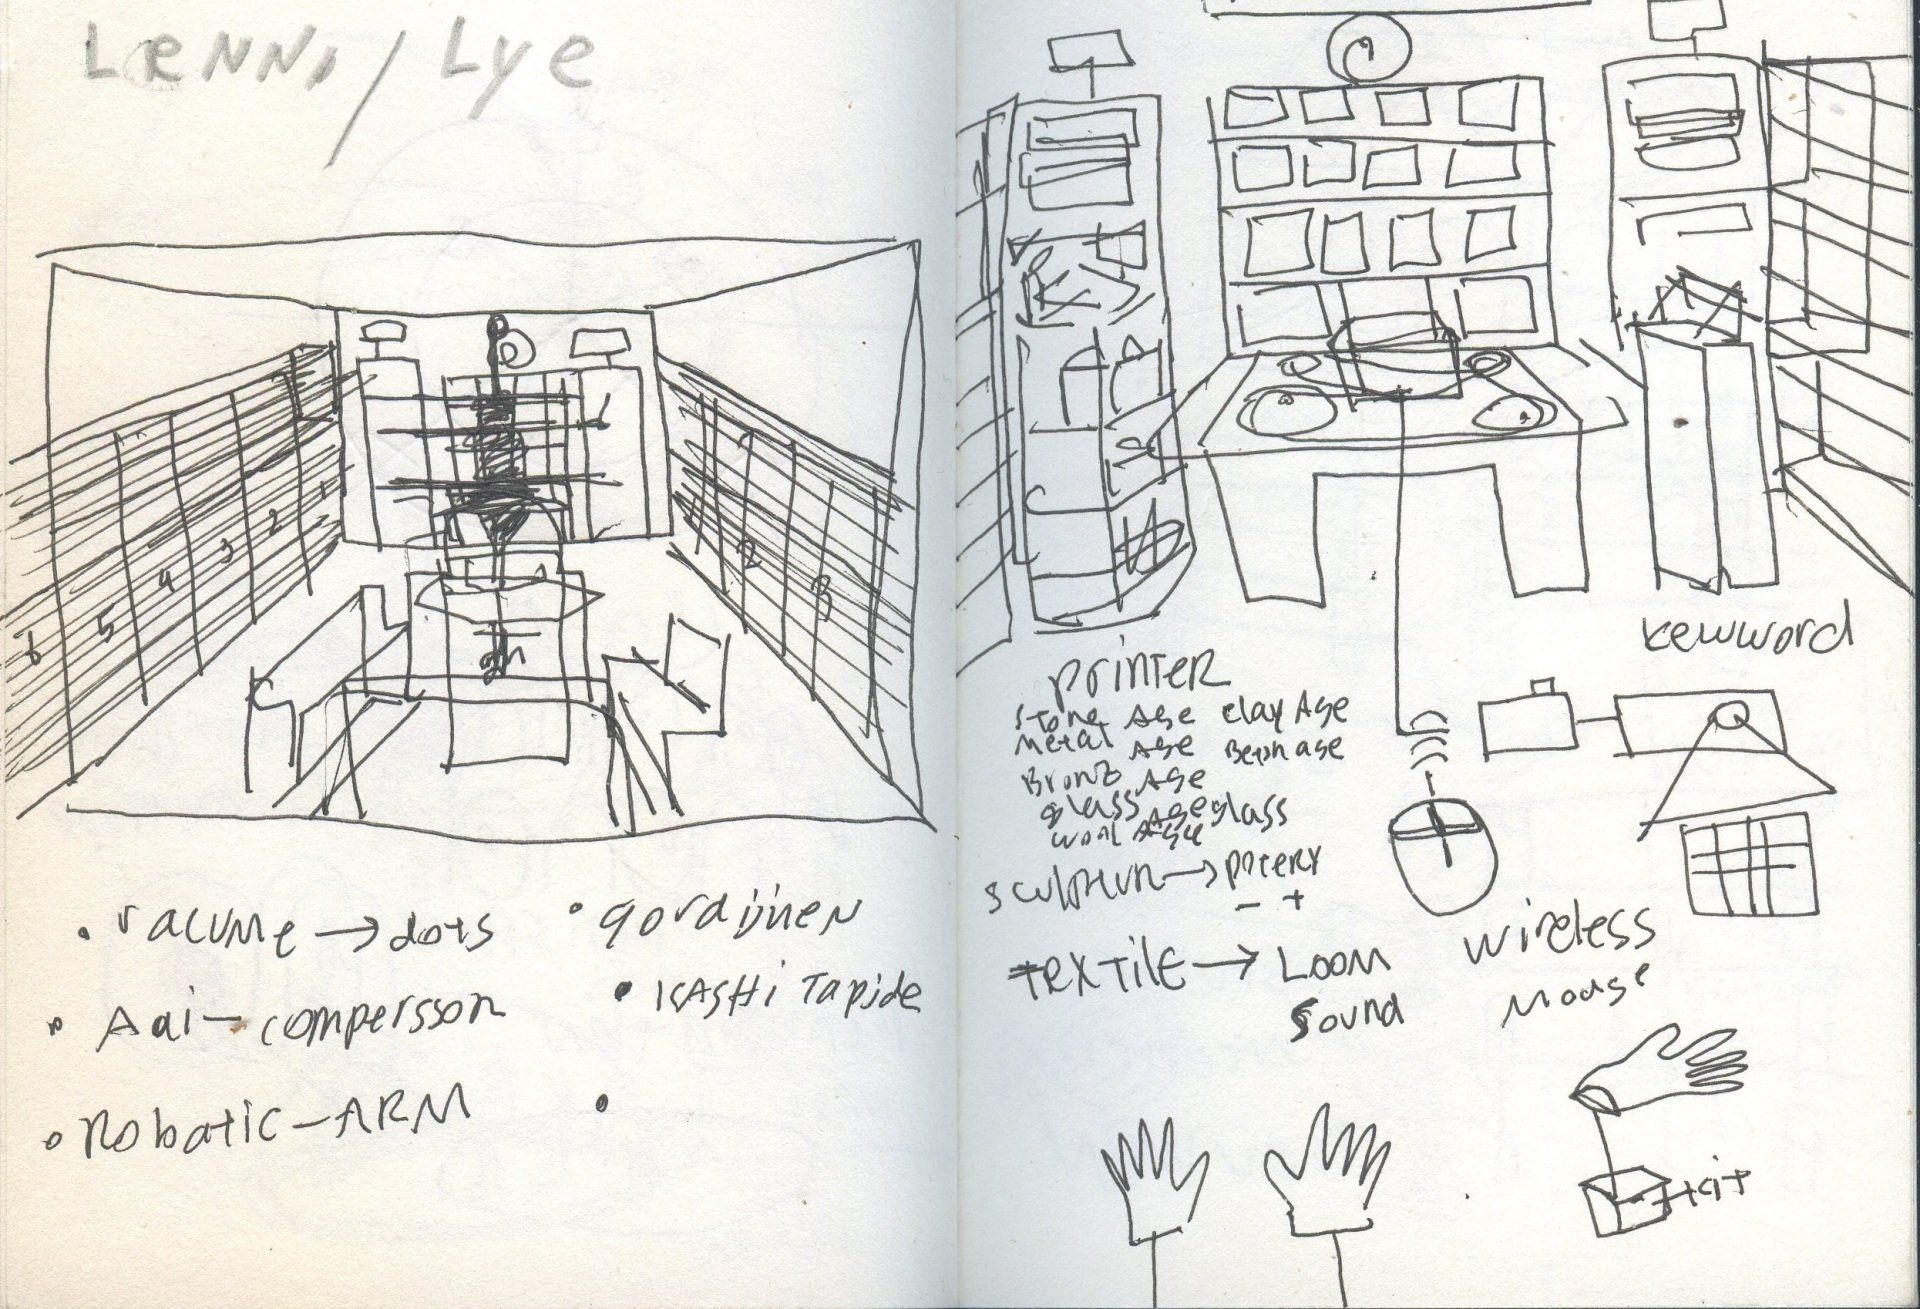 LENNI / Lye
6 5 4 3 2 1
2 3
• vacume → dots
• Aai – compersson
• Robatic – ARM
• gordijnen
• KASHi Tapide
printer
stone Age clay Age
metal Age Beton age
Bronz Age
glass Age glass
wool Age
sculpture → potery
- +
TEXTILE → LOOM
Sound
kewword
wireless
Mouse